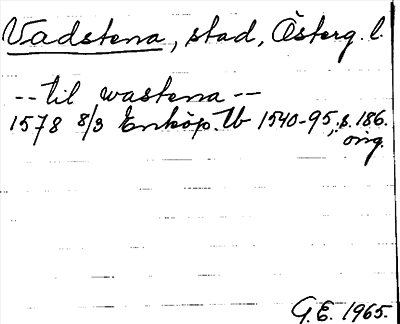 Vadstena, stad, Österg. l.
-- til wastena --
1578 8/3 Enköp. Tb 1540-95, s. 186.
orig.
G.E. 1965.